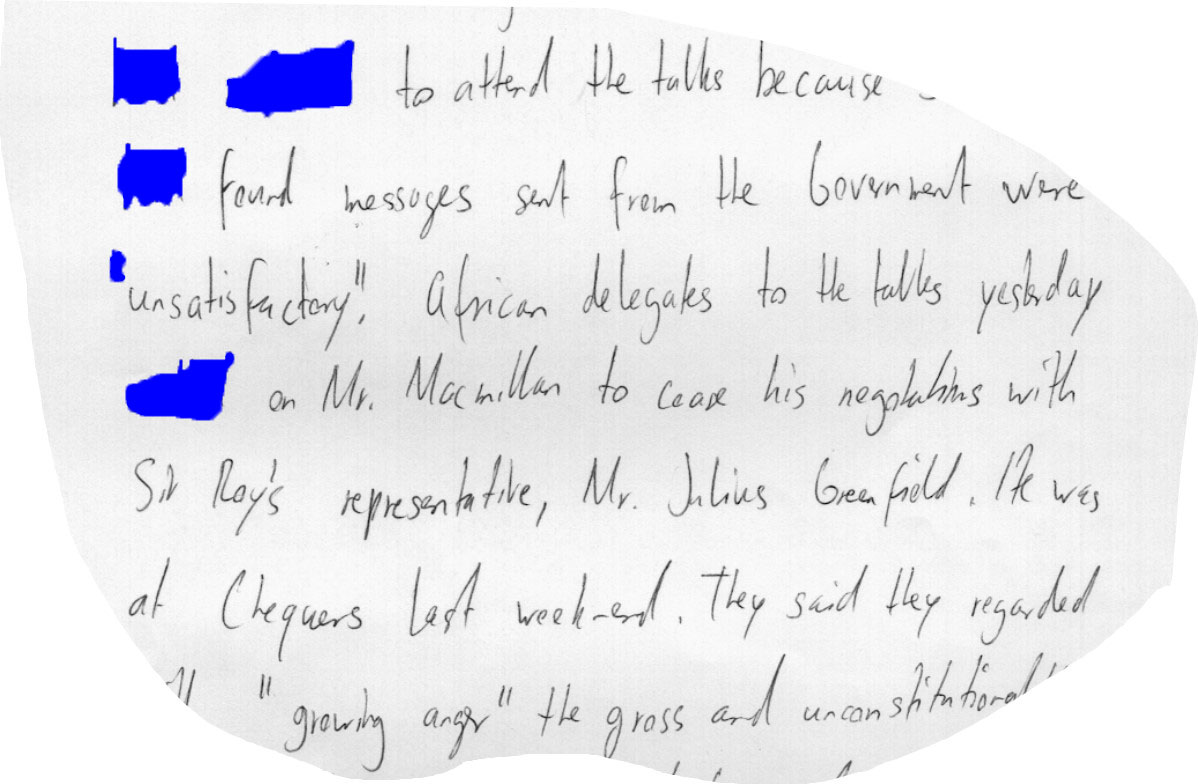 to attend the talks because
found messages sent from the Government were
unsatisfactory". African delegates to the talks yesterday
on Mr. Macmillan to cease his negotiations with
Sir Roy's representative, Mr. Julius Greenfield. He was
at Chequers last week-end. They said they regarded
"growing anger" the gross and unconstitutional